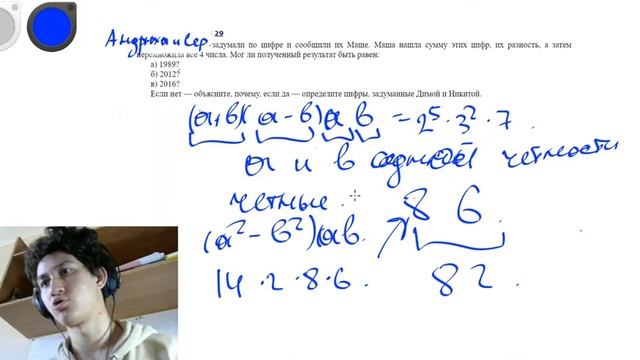 29
Андрюха и Сер
задумали по цифре и сообщили их Маше. Маша нашла сумму этих цифр, их разность, а затем
перемножила все 4 числа. Мог ли полученный результат быть равен:
а) 1989?
б) 2012?
в) 2016?
Если нет — объясните, почему, если да — определите цифры, задуманные Димой и Никитой.
(a+b)(a-b)ab = 2⁵·3²·7.
a и b одной четности
четные.
8 6
(a²-b²)(ab.
14·2·8·6.
82.